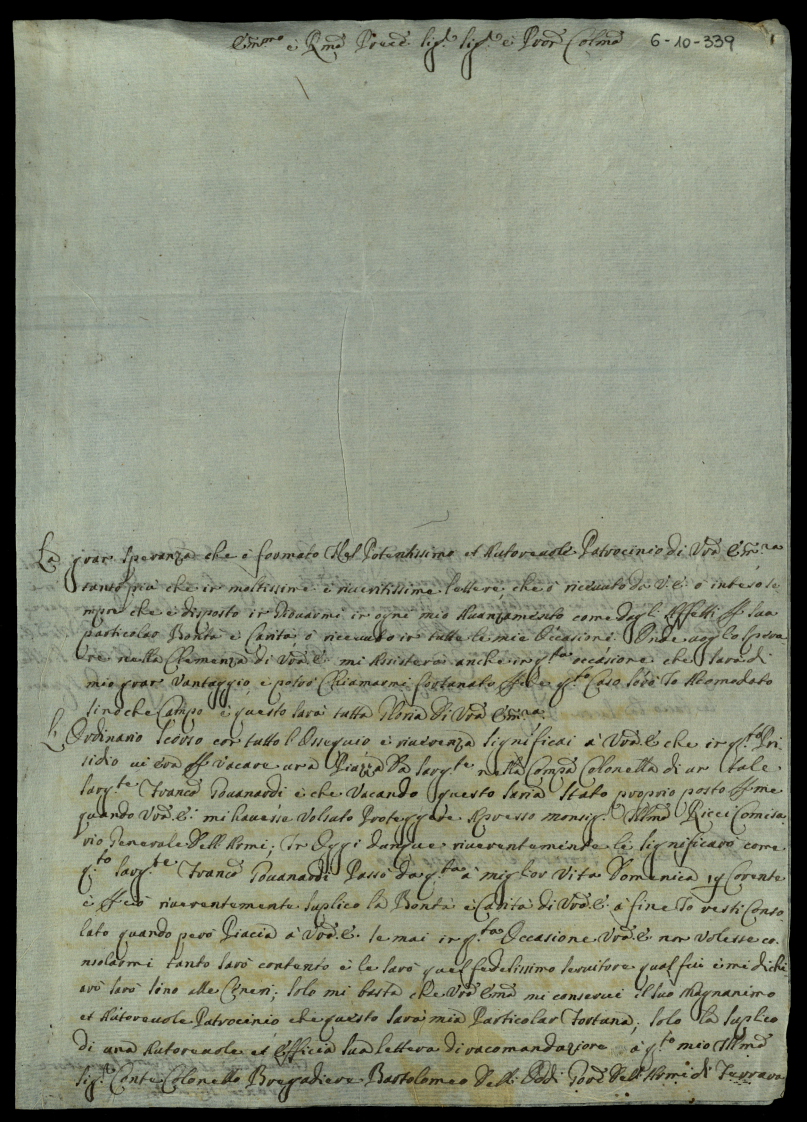 Em:mo e R.mo Prencè. Sig.r Sig.r è Pron Colmo 6-10-339
La gran speranza che è formato Nel Potentissimo et Autoreuole Patrocinio di Vra Em:za
tanto più che in moltissime è riueritissime lettere, che ò riceuuto da V.E. ò inteso se
mpre che è disposto in Giouarmi in ogni mio Auanzamento come dagl' Effetti p sua
particolar Bontà è Carità ò riceuuto in tutte le mie Occasioni Onde uoglio spera
re nella Clemenza di Vra E. mi Assisterà anche in q.ta occasione che sarà di
mio gran Vantaggio, e potrò Chiamarmi fortunato p che q.to Caso sarò Io Acomodato
sin che Campo è questo sarà tutta Gloria di Vra Em:za
L' Ordinario scorso con tutto l'Ossequio è riuerenza significai à Vra E. che in q.to Pri
sidio ui era p Vacare una Piazza Da Sarg.te nella Comp.a Colonella di un tale
Sarg.te Franco Giuanardi è che Vacando questo saria stato proprio posto p me
quando Vra E. mi hauesse Volsuto Proteggere Apresso monsig.r Illmo Ricci Comisa
rio Generale Dell'Armi; In Oggi dunque riuerentemente le significarò come
q.to Sarg.te Franco Giuanardi Passò da q.ta à miglior Vita Domenica 19 Corente
è p ciò riuerentemente suplico la Bontà è Carità di Vra E. à fine Io resti Conso
lato quando però Piacia à Vra E. se mai in q.ta Occasione Vra E. non Volesse co
nsolarmi tanto sarò contento è le sarò quel fedelissimo seruitore qual fui è mi dichi
arò sarò sino alle Ceneri; solo mi basta che Vra Emza mi conserui il suo Magnanimo
et Autoreuole Patrocinio che questo sarà mia Particolar Fortuna; solo la suplico
di una Autoreuole et Efficcia sua lettera di racomandazione à q.to mio Illmo
Sig.r Conte Colonello Bregadiere Bartolomeo Delli Oddi Gore Dell'Armi di Ferrara